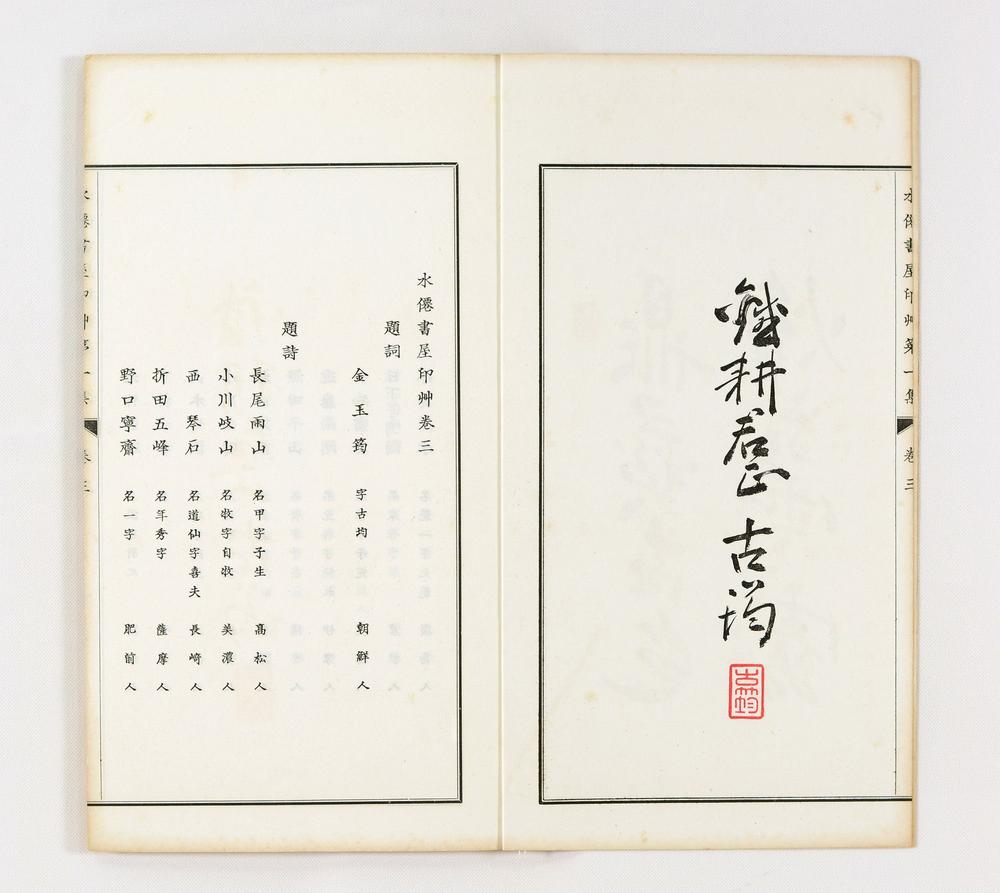 水僊書屋印艸第一集 卷三
鐵耕君正 古均
古筠
水僊書屋印艸卷三
題詞
金玉筠 字古均 朝鮮人
題詩
長尾雨山 名甲字子生 高松人
小川岐山 名收字自收 美濃人
西琴石 名道仙字喜夫 長崎人
折田五峰 名年秀字 薩摩人
野口寧齋 名一字 肥前人